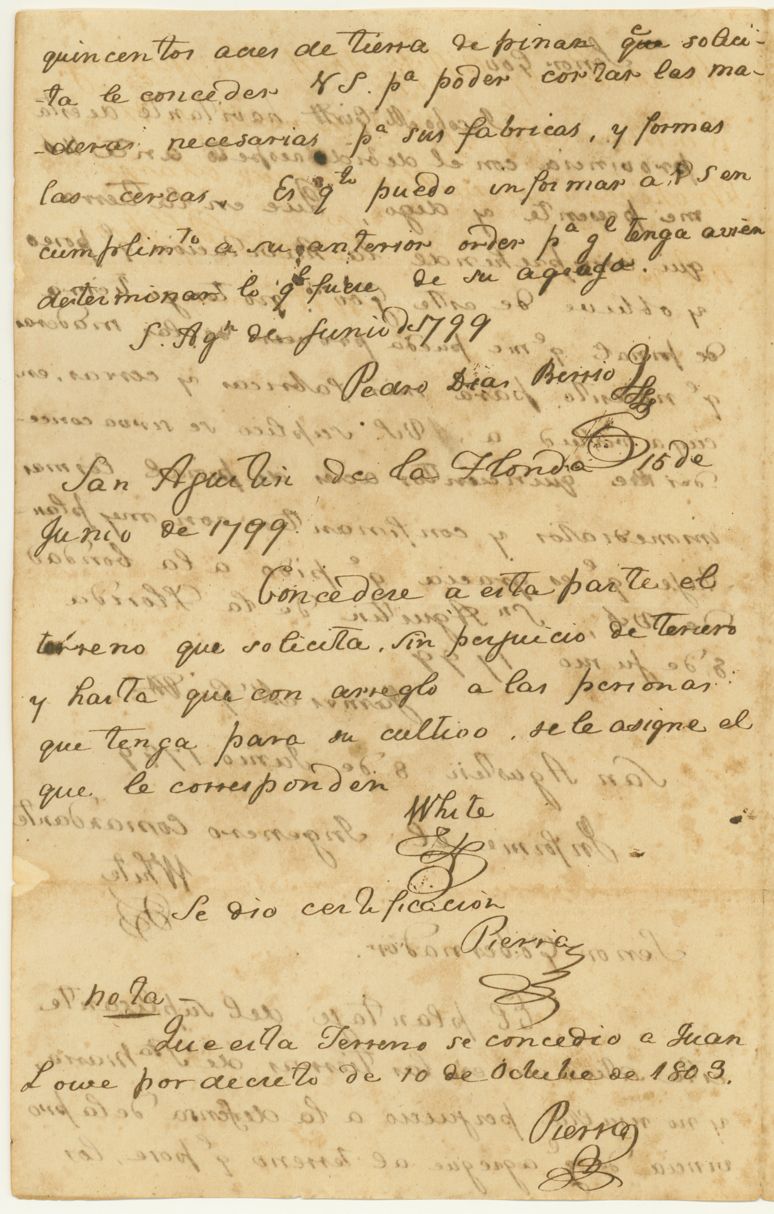 quincentos acres de tierra de pinar que solici-
-ta le conceder V S. pa poder cortar las ma-
-deras necesarias pa sus fabricas, y formar
las cercas. Es qto puedo informar a V S en
cumplimto a su anterior order pa ql tenga avien
determinar lo ql fuere de su agrado.
S. Agn de Junio de 1799
Pedro Dias Berrio
San Agustin de la Florida 15 de
Junio de 1799.
Concedese a esta parte el
terreno que solicita, sin perjuicio de tercero
y hasta que con arreglo a las personas
que tenga para su cultivo, se le asigne el
que le corresponden
White
Se dio certificacion
Pierra
nota
Que esta Terreno se concedio a Juan
Lowe por decreto de 10 de Octubre de 1803.
Pierra